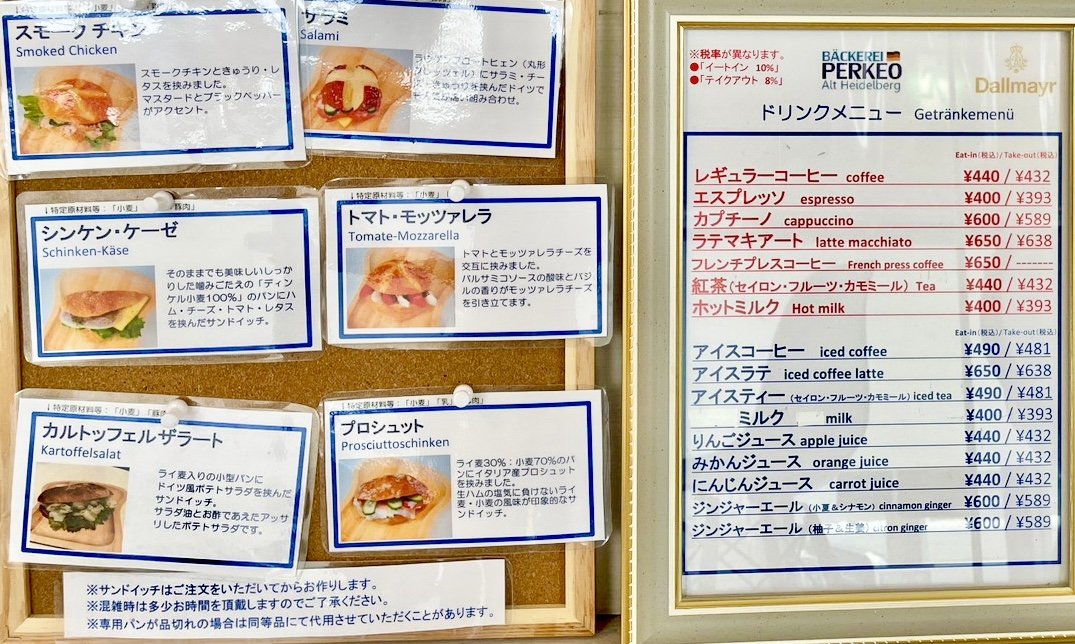 スモークチキン
Smoked Chicken
スモークチキンときゅうり・レ
タスを挟みました。
マスタードとブラックペッパー
がアクセント。
サラミ
Salami
(丸形
にサラミ・チー
きゅうりを挟んだドイツで
組み合わせ。
↓特定原材料等:「小麦」 「豚肉」
シンケン・ケーゼ
Schinken-Käse
そのままでも美味しいしっか
りした噛みごたえの「ディン
ケル小麦100%」のパンにハ
ム・チーズ・トマト・レタス
を挟んだサンドイッチ。
↓特定原材料等:「小麦」「乳」
トマト・モッツァレラ
Tomate-Mozzarella
トマトとモッツァレラチーズを
交互に挟みました。
バルサミコソースの酸味とバジ
ルの香りがモッツァレラチーズ
を引き立てます。
↓特定原材料等:「小麦」「豚肉
カルトッフェルザラート
Kartoffelsalat
ライ麦入りの小型パンに
ドイツ風ポテトサラダを挟んだ
サンドイッチ。
サラダ油とお酢であえたアッサ
リしたポテトサラダです。
↓特定原材料等:「小麦」「乳」 肉」
プロシュット
Prosciuttoschinken
ライ麦30%:小麦70%のパ
ンにイタリア産プロシュット
を挟みました。
生ハムの塩気に負けないライ
麦・小麦の風味が印象的なサ
ンドイッチ。
※サンドイッチはご注文をいただいてからお作りします。
※混雑時は多少お時間を頂戴しますのでご了承ください。
※専用パンが品切れの場合は同等品にて代用させていただくことがあります。
※税率が異なります。
●「イートイン 10%」
●「テイクアウト 8%」
BÄCKEREI
PERKEO
Alt Heidelberg
Dallmayr
ドリンクメニュー Getränkemenü
Eat-in(税込)/Take-out(税込)
レギュラーコーヒー coffee ¥440 / ¥432
エスプレッソ espresso ¥400 / ¥393
カプチーノ cappuccino ¥600 / ¥589
ラテマキアート latte macchiato ¥650 / ¥638
フレンチプレスコーヒー French press coffee ¥650 / -------
紅茶(セイロン・フルーツ・カモミール) Tea ¥440 / ¥432
ホットミルク Hot milk ¥400 / ¥393
Eat-in(税込)/Take-out(税込)
アイスコーヒー iced coffee ¥490 / ¥481
アイスラテ iced coffee latte ¥650 / ¥638
アイスティー(セイロン・フルーツ・カモミール) iced tea ¥490 / ¥481
ミルク milk ¥400 / ¥393
りんごジュース apple juice ¥440 / ¥432
みかんジュース orange juice ¥440 / ¥432
にんじんジュース carrot juice ¥440 / ¥432
ジンジャーエール(小夏&シナモン) cinnamon ginger ¥600 / ¥589
ジンジャーエール(柚子&生姜) citron ginger ¥600 / ¥589